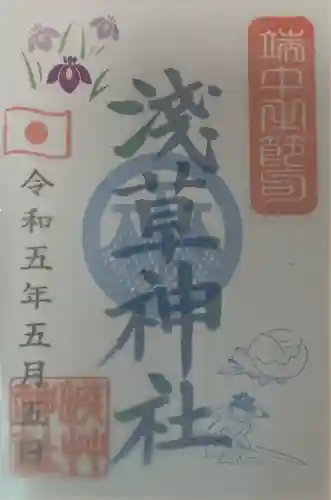 端午之節句
淺草神社
令和五年五月五日